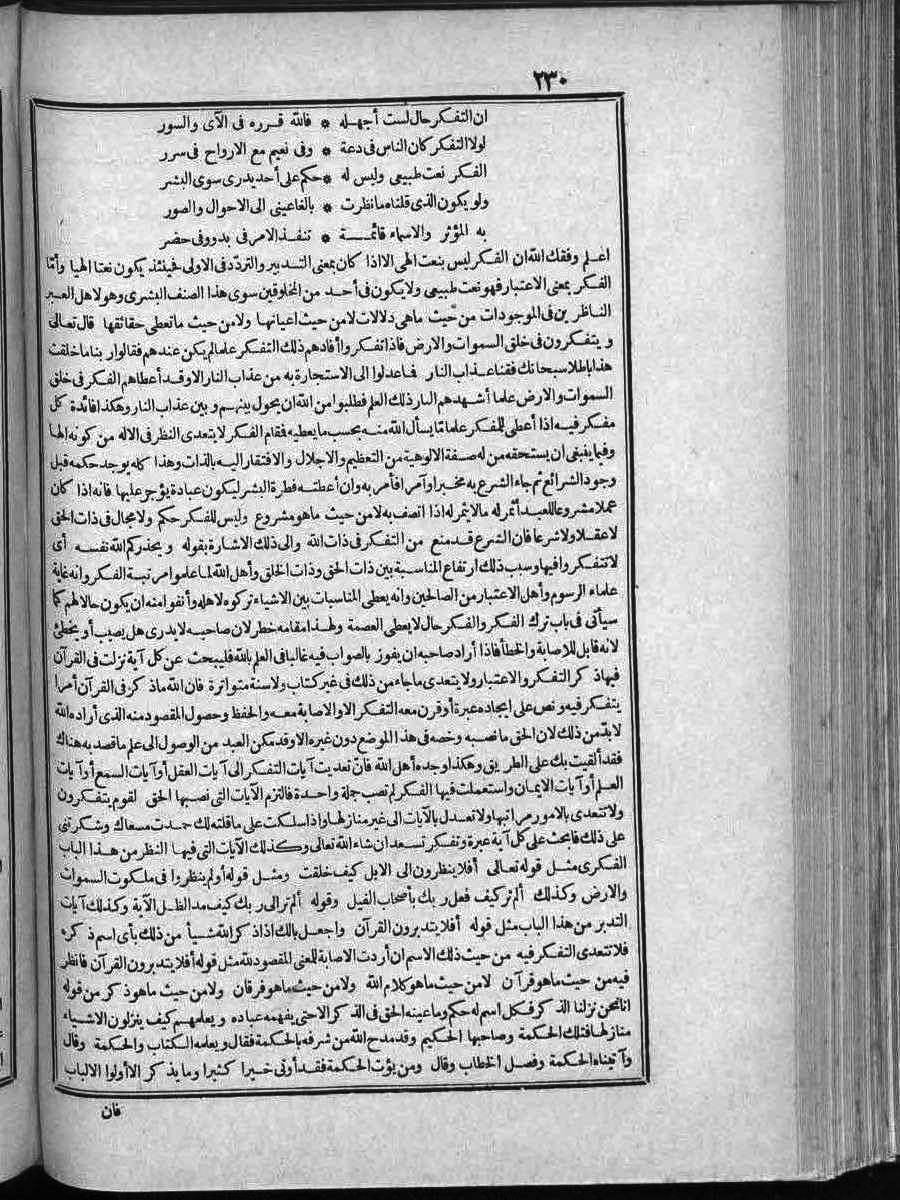 ٢٣٠
ان التفكر حال لست أجهله * فالله قرره فى الآى والسور
لولا التفكر كان الناس فى دعة * وفى نعيم مع الارواح فى سرر
الفكر نعت طبيعى وليس له * حكم على أحد يدرى سوى البشر
ولو يكون الذى قلناه ما نظرت * بالفاعينى الى الاحوال والصور
به المؤثر والاسماء قائمة * تنفذ الامر فى بدو وفى حضر
اعلم وفقك الله ان الفكر ليس بنعت الهى الا اذا كان بمعنى التدبير والتردد فى الاولى فحينئذ يكون نعتا الهيا وأمّا
الفكر بمعنى الاعتبار فهو نعت طبيعى ولا يكون فى أحد من المخلوقين سوى هذا الصنف البشرى وهو لاهل العبر
الناظرين فى الموجودات من حيث ماهى دلالات لا من حيث اعيانها ولا من حيث ما تعطى حقائقها قال تعالى
ويتفكرون فى خلق السموات والارض فاذا تفكر وا أفادهم ذلك التفكر علما لم يكن عندهم فقالوا ربنا ما خلقت
هذا باطلا سبحانك فقنا عذاب النار فاعدلوا الى الاستجارة به من عذاب النار الا وقد أعطاهم الفكر فى خلق
السموات والارض علما أشهدهم النار ذلك العلم فطلبوا من الله ان يحول بينهم وبين عذاب النار وهكذا فائدة كل
مفكر فيه اذا أعطى للمفكر علما مّا يسأل الله منه بحسب ما يعطيه فقام الفكر لا يتعدى النظر فى الاله من كونه الها
وفيما ينبغى ان يستحقه من له صفة الالوهية من التعظيم والاجلال والافتقار اليه بالذات وهذا كله يوجد حكمه قبل
وجود الشرائع ثم جاء الشرع به مخبرا وآمرا فأمر به وان أعطته فطرة البشر ليكون عبادة يؤجر عليها فانه اذا كان
عملا مشروعا للعبد أثمر له ما لا يثمر له اذا اتصف به لا من حيث ما هو مشروع وليس للفكر حكم ولا مجال فى ذات الحق
لا عقلا ولا شرعا فان الشرع قد منع من التفكر فى ذات الله والى ذلك الاشارة بقوله ويحذركم الله نفسه أى
لا تتفكروا فيها وسبب ذلك ارتفاع المناسبة بين ذات الحق وذات الخلق وأهل الله لما علموا مرتبة الفكر وانه غاية
علماء الرسوم وأهل الاعتبار من الصالحين وانه يعطى المناسبات بين الاشياء تركوه لاهله وأنفوا منه ان يكون حالا لهم كما
سيأتى فى باب ترك الفكر والفكر حال لا يعطى العصمة ولهذا مقامه خطر لان صاحبه لا يدرى هل يصيب أو يخطئ
لانه قابل للاصابة والخطأ فاذا أراد صاحبه ان يفوز بالصواب فيه غالبا فى العلم بالله فليبحث عن كل آية نزلت فى القرآن
فيها ذكر التفكر والاعتبار ولا يتعدى ما جاء من ذلك فى غير كتاب ولا سنة متواترة فان الله ماذكر فى القرآن أمرا
يتفكر فيه ونص على ايجاده عبرة أو قرن معه التفكر الا والاصابة معه والحفظ وحصول المقصود منه الذى أراده الله
لابدّ من ذلك لان الحق ما نصبه وخصه فى هذا الموضع دون غيره الا وقد مكن العبد من الوصول الى علم ما قصد به هناك
فقد ألقيت بك على الطريق وهكذا وجده أهل الله فان تعديت آيات التفكر الى آيات العقل أو آيات السمع أو آيات
العلم أو آيات الايمان واستعملت فيها الفكر لم تصب جملة واحدة فالتزم الآيات التى نصبها الحق لقوم يتفكرون
ولا تتعدى بالامور مراتبها ولا تعدل بالآيات الى غير منازلها واذا سلكت على ما قلته لك حمدت مسعاك وشكرتنى
على ذلك فابحث على كل آية عبرة وتفكر تسعد ان شاء الله تعالى وكذلك الآيات التى فيها النظر من هذا الباب
الفكرى مثل قوله تعالى أفلا ينظرون الى الابل كيف خلقت ومثل قوله أولم ينظروا فى ملكوت السموات
والارض وكذلك ألم تر كيف فعل ربك بأصحاب الفيل وقوله ألم تر الى ربك كيف مد الظل الآية وكذلك آيات
التدبر من هذا الباب مثل قوله أفلا يتدبرون القرآن واجعل بالك اذا ذكر الله شيأ من ذلك بأى اسم ذكره
فلا تتعدى التفكر فيه من حيث ذلك الاسم ان أردت الاصابة للمعنى المقصود لله مثل قوله أفلا يتدبرون القرآن فانظر
فيه من حيث ما هو قرآن لا من حيث ما هو كلام الله ولا من حيث ما هو فرقان ولا من حيث ما هو ذكر من قوله
انا نحن نزلنا الذكر فكل اسم له حكم وما عينه الحق فى الذكر الا حتى يفهمه عباده ويعلمهم كيف ينزلون الاشياء
منازلها فتلك الحكمة وصاحبها الحكيم وقد مدح الله من شرفه بالحكمة فقال ويعلمه الكتاب والحكمة وقال
وآتيناه الحكمة وفصل الخطاب وقال ومن يؤت الحكمة فقد أوتى خيرا كثيرا وما يذكر الا أولوا الالباب
فان